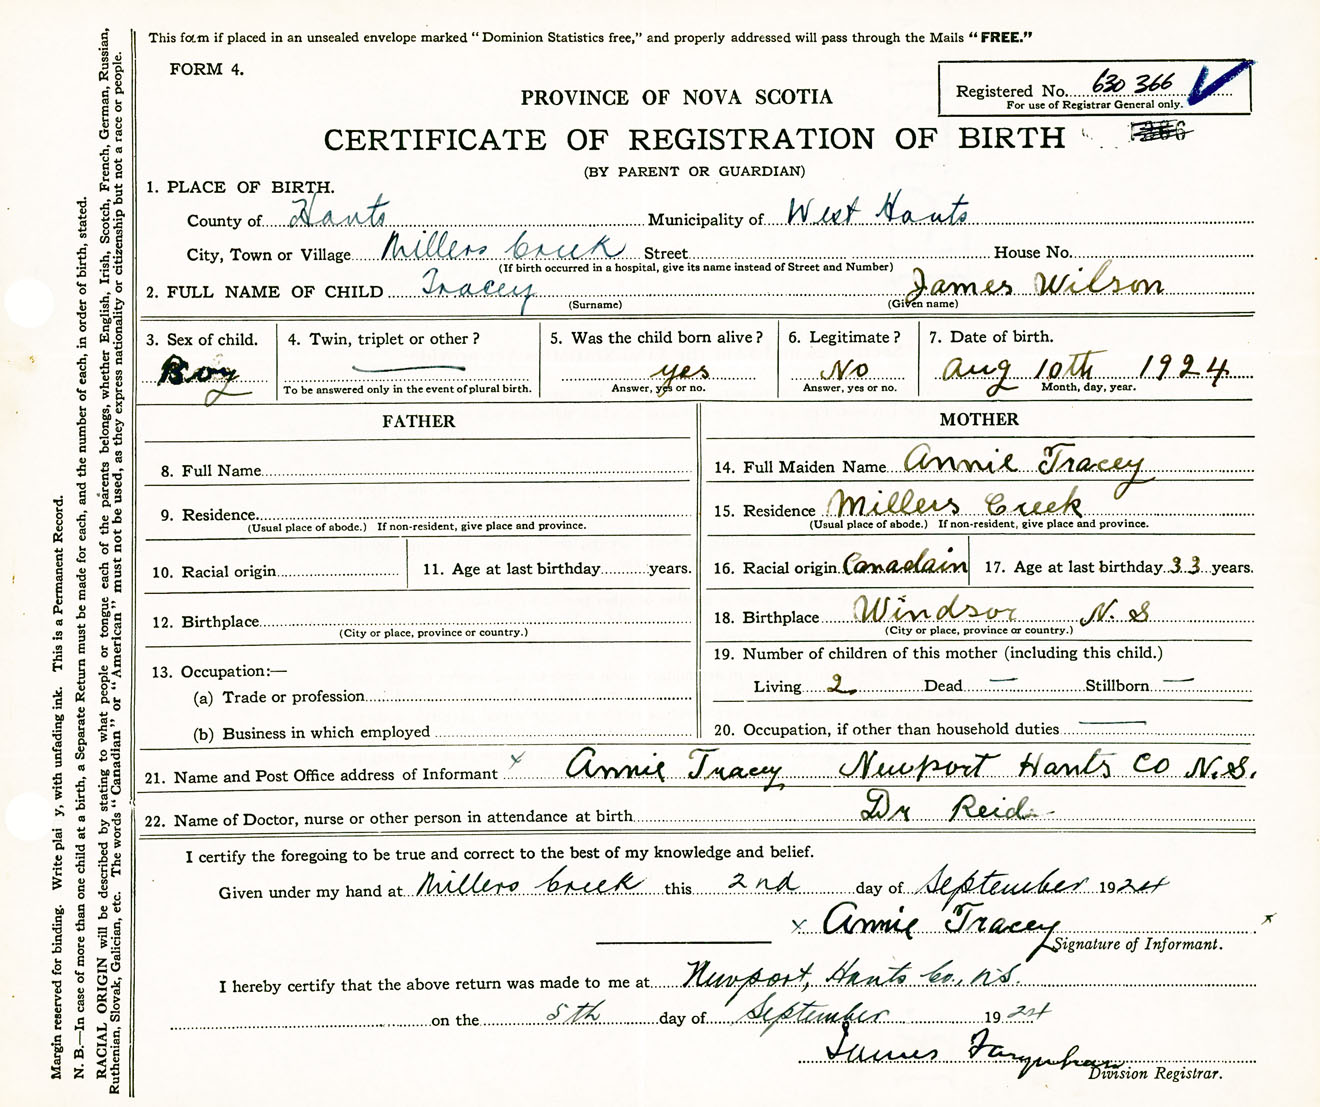 This form if placed in an unsealed envelope marked "Dominion Statistics free," and properly addressed will pass through the Mails "FREE."
FORM 4.
Registered No. 630 366
For use of Registrar General only.
PROVINCE OF NOVA SCOTIA
CERTIFICATE OF REGISTRATION OF BIRTH
(BY PARENT OR GUARDIAN)
1. PLACE OF BIRTH.
County of Hants Municipality of West Hants
City, Town or Village Millers Creek Street House No.
(If birth occurred in a hospital, give its name instead of Street and Number)
2. FULL NAME OF CHILD Tracey James Wilson
(Surname) (Given name)
3. Sex of child. 4. Twin, triplet or other? 5. Was the child born alive? 6. Legitimate? 7. Date of birth.
Boy yes No Aug 10th 1924
To be answered only in the event of plural birth. Answer, yes or no. Answer, yes or no. Month, day, year.
FATHER
8. Full Name
9. Residence.
(Usual place of abode.) If non-resident, give place and province.
10. Racial origin 11. Age at last birthday years.
12. Birthplace
(City or place, province or country.)
13. Occupation:—
(a) Trade or profession
(b) Business in which employed
MOTHER
14. Full Maiden Name Annie Tracey
15. Residence Millers Creek
(Usual place of abode.) If non-resident, give place and province.
16. Racial origin Canadain 17. Age at last birthday 33 years.
18. Birthplace Windsor N.S
(City or place, province or country.)
19. Number of children of this mother (including this child.)
Living 2 Dead — Stillborn —
20. Occupation, if other than household duties —
21. Name and Post Office address of Informant x Annie Tracey Newport Hants Co N.S.
22. Name of Doctor, nurse or other person in attendance at birth Dr Reid
I certify the foregoing to be true and correct to the best of my knowledge and belief.
Given under my hand at Millers Creek this 2nd day of September 1924
x Annie Tracey x
Signature of Informant.
I hereby certify that the above return was made to me at Newport, Hants Co., N.S.
on the 5th day of September 1924
James
Division Registrar.
Margin reserved for binding. Write plai y, with unfading ink. This is a Permanent Record.
N. B.—In case of more than one child at a birth, a Separate Return must be made for each, and the number of each, in order of birth, stated.
RACIAL ORIGIN will be described by stating to what people or tongue each of the parents belongs, whether English, Irish, Scotch, French, German, Russian,
Ruthenian, Slovak, Galician, etc. The words "Canadian" or "American" must not be used, as they express nationality or citizenship but not a race or people.